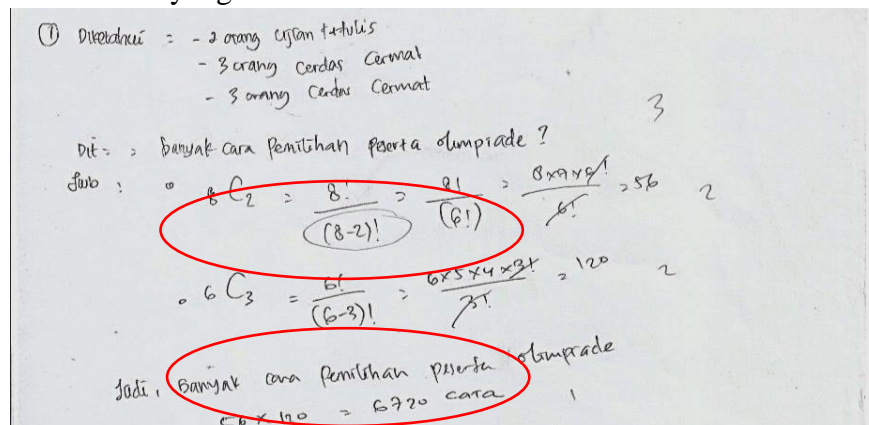 ① Diketahui = - 2 orang ujian tertulis
- 3 orang Cerdas Cermat
- 3 orang Cerdas Cermat
3
Dit = : Banyak cara Pemilihan peserta olimpiade ?
Jwb : • 8C2 = 8! / (8-2)! = 8! / (6!) = 8x7x6! / 6! = 56 2
• 6C3 = 6! / (6-3)! = 6x5x4x3! / 3! = 120 2
Jadi, Banyak cara Pemilihan peserta olimpiade
56 x 120 = 6720 cara 1